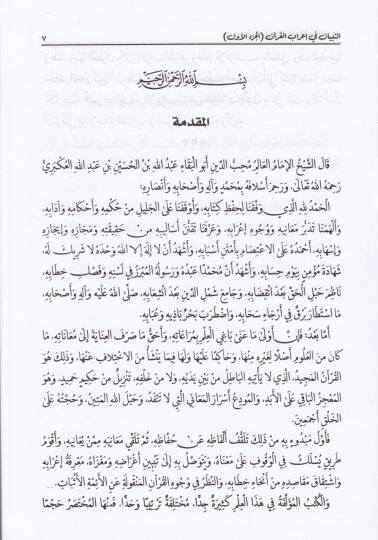 التبيان في إعراب القرآن (الجزء الأول) ٧
بِسْمِ اللَّهِ الرَّحْمَنِ الرَّحِيمِ
المقدمة
قَالَ الشَّيْخُ الإِمَامُ العَالِمُ مُحِبُّ الدِّينِ أَبُو البَقَاءِ عَبْدُ اللهِ بْنُ الحُسَيْنِ بْنِ عَبْدِ اللهِ العُكْبَرِيُّ
رَحِمَهُ اللهُ تَعَالَى، وَرَحِمَ أَسْلَافَهُ بِمُحَمَّدٍ وَآلِهِ وَأَصْحَابِهِ وَأَنْصَارِهِ:
الحَمْدُ لِلهِ الَّذِي وَفَّقَنَا لِحِفْظِ كِتَابِهِ، وَأَوْقَفَنَا عَلَى الجَلِيلِ مِنْ حُكْمِهِ وَأَحْكَامِهِ وَآدَابِهِ،
وَأَلْهَمَنَا تَدَبُّرَ مَعَانِيهِ وَوُجُوهِ إِعْرَابِهِ، وَعَرَّفَنَا تَفَنُّنَ أَسَالِيبِهِ مِنْ حَقِيقَتِهِ وَمَجَازِهِ وَإِيجَازِهِ
وَإِسْهَابِهِ، أَحْمَدُهُ عَلَى الاعْتِصَامِ بِأَمْتَنِ أَسْبَابِهِ، وَأَشْهَدُ أَنْ لَا إِلَهَ إِلَّا اللهُ وَحْدَهُ لَا شَرِيكَ لَهُ،
شَهَادَةَ مُؤْمِنٍ بِيَوْمِ حِسَابِهِ، وَأَشْهَدُ أَنَّ مُحَمَّدًا عَبْدُهُ وَرَسُولُهُ المُبَرِّزُ فِي لَسَنِهِ وَفَصْلِ خِطَابِهِ،
نَاظِمُ حَبْلِ الحَقِّ بَعْدَ انْقِضَابِهِ، وَجَامِعُ شَمْلِ الدِّينِ بَعْدَ انْشِعَابِهِ، صَلَّى اللهُ عَلَيْهِ وَآلِهِ وَأَصْحَابِهِ،
مَا اسْتَطَارَ بَرْقٌ فِي أَرْجَاءِ سَحَابِهِ، وَاضْطَرَبَ بَحْرٌ بِآذِيِّهِ وَعُبَابِهِ.
أَمَّا بَعْدُ: فَإِنَّ أَوْلَى مَا عُنِيَ بَاغِي العِلْمِ بِمُرَاعَاتِهِ، وَأَحَقَّ مَا صَرَفَ العِنَايَةَ إِلَى مُعَانَاتِهِ، مَا
كَانَ مِنَ العُلُومِ أَصْلًا لِغَيْرِهِ مِنْهَا، وَحَاكِمًا عَلَيْهَا وَلَهَا فِيمَا يَنْشَأُ مِنَ الاخْتِلَافِ عَنْهَا، وَذَلِكَ هُوَ
القُرْآنُ المَجِيدُ، الَّذِي لَا يَأْتِيهِ البَاطِلُ مِنْ بَيْنِ يَدَيْهِ، وَلَا مِنْ خَلْفِهِ، تَنْزِيلٌ مِنْ حَكِيمٍ حَمِيدٍ، وَهُوَ
المُعْجِزُ البَاقِي عَلَى الأَبَدِ، وَالمُودَعُ أَسْرَارَ المَعَانِي الَّتِي لَا تَنْفَدُ، وَحَبْلُ اللهِ المَتِينُ، وَحُجَّتُهُ عَلَى
الخَلْقِ أَجْمَعِينَ.
فَأَوَّلُ مَبْدُوءٍ بِهِ مِنْ ذَلِكَ تَلَقُّفُ أَلْفَاظِهِ عَنْ حُفَّاظِهِ، ثُمَّ تَلَقِّي مَعَانِيهِ مِمَّنْ يُعَانِيهِ، وَأَقْوَمُ
طَرِيقٍ يُسْلَكُ فِي الوُقُوفِ عَلَى مَعْنَاهُ، وَيُتَوَصَّلُ بِهِ إِلَى تَبْيِينِ أَغْرَاضِهِ وَمَغْزَاهُ، مَعْرِفَةُ إِعْرَابِهِ
وَاشْتِقَاقُ مَقَاصِدِهِ مِنْ أَنْحَاءِ خِطَابِهِ، وَالنَّظَرُ فِي وُجُوهِ القُرْآنِ المَنْقُولَةِ عَنِ الأَئِمَّةِ الأَثْبَاتِ.
وَالكُتُبُ المُؤَلَّفَةُ فِي هَذَا العِلْمِ كَثِيرَةٌ جِدًّا، مُخْتَلِفَةٌ تَرْتِيبًا وَحَدًّا، فَمِنْهَا المُخْتَصَرُ حَجْمًا